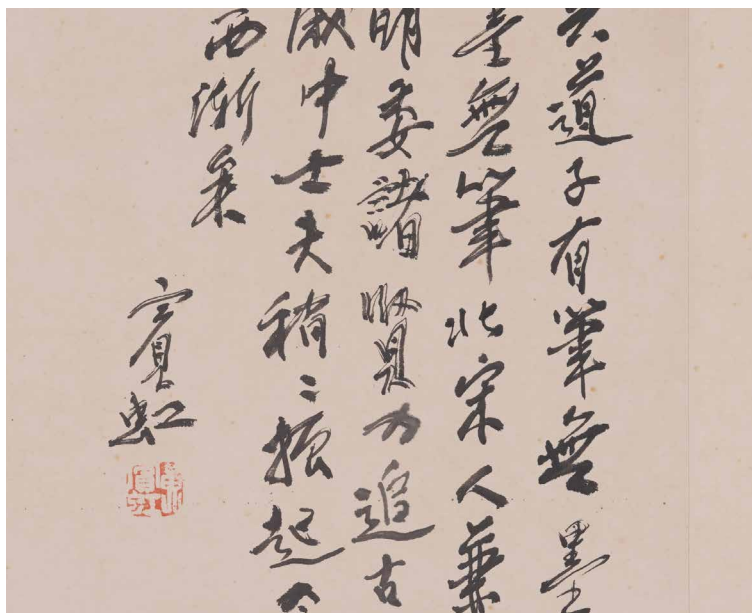 吳道子有筆無墨
墨無筆北宋人兼
明季諸賢力追古
咸中士夫稍〻振起
西漸矣
賓虹
黃賓虹